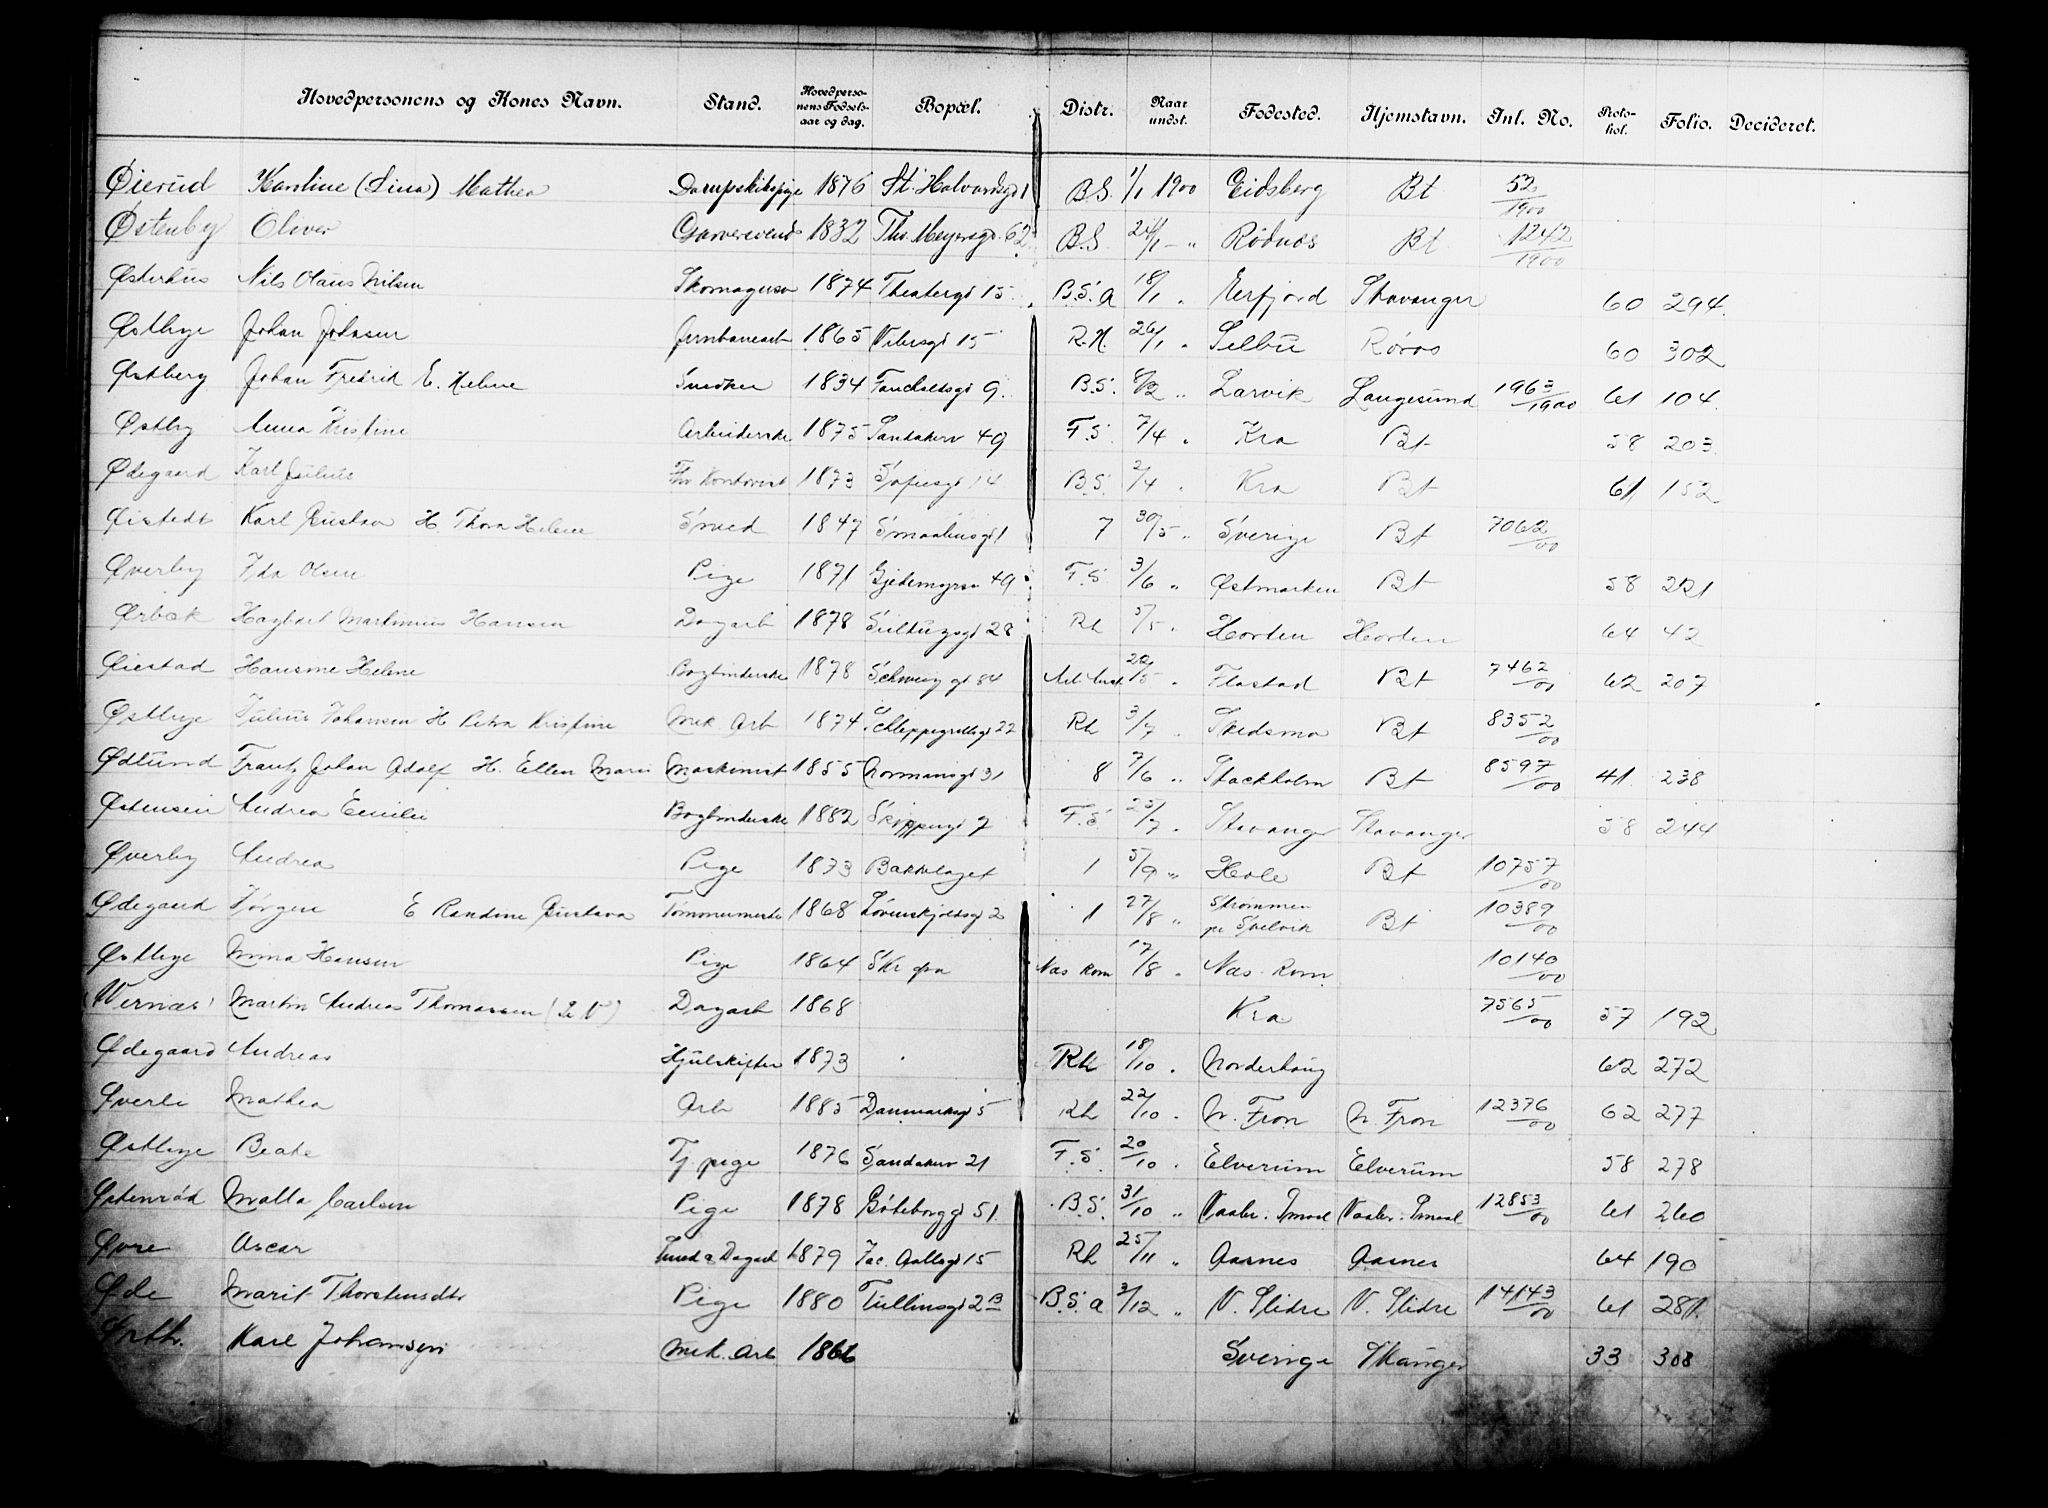 Hovedpersonens og Kones Navn. Stand. Hovedpersonens Fødselsaar og dag. Bopæl. Distr. Naar undst. Fødested. Hjemstavn. Inl. No. Protokol. Folio. Decideret.
Øierud Karoline (Lina) Mathea Dampskibspige 1876 St. Halvardsgd 1 B.S. 1/1 1900 Eidsberg Bt 52/1900
Østenby Oliver Garversvend 1832 Thv. Meyersgd. 62 B.S. 24/1 - " Rødnæs Bt 1242/1900
Østerhus Nils Olaus Nilsen Skomagersv 1874 Theatergd 15 B.S. a 18/1 " Erfjord Stavanger 60 294
Østbye Johan Johnsen Jernbanearb 1865 Vibesgd 15 R.H. 26/1 " Selbu Røros 60 302
Østberg Johan Fredrik E. Helene Snedker 1834 Fauchaldsgd 9. B.S. 8/2 " Larvik Langesund 1963/1900 61 104
Østby Anna Kristine Arbeiderske 1875 Sandakerv 49 F.S. 7/4 " Kra Bt 58 203
Ødegaard Karl Julius Fhv Kontorist 1873 Sofiesgd 14 B.S. 2/4 " Kra Bt 61 152
Øistedt Karl Gustav H. Thora Helene Smed 1847 Smaalensgd 1 7 30/5 " Sverige Bt 7062/00
Øverby Ida Olsen Pige 1871 Gjetemyrsv 49 F.S. 3/6 " Østmarken Bt 58 221
Ørbæk Hagbart Martinius Hansen Dagarb 1878 28 Rh 5/5 " Horten Horten 64 42
Øiestad Hansine Helene Bogbinderske 1878 Schweig gd 84 20/5 " Flostad Bt 7462/00 62 207
Østbye Julius Johansen H Petra Kristine Mek Arb 1874 Schleppegrellsgd 22 Rh 3/7 " Skedsmo Bt 8352/00
Ødlund Frantz Johan Adolf H. Ellen Marie Maskinist 1855 Normansgd 31 8 7/6 " Stockholm Bt 8597/00 41 238
Østensen Andrea Emilie Bogbinderske 1882 Skippergd 7 F.S. 25/7 " Stavanger Stavanger 58 244
Øverby Andrea Pige 1873 Bakkelaget 1 5/9 " Hole Bt 10757/00
Ødegaard Jørgen E Randine Gustava Tømmermester 1868 Løvenskjoldsgd 2 1 27/8 " Strømmen pr Svelvik Bt 10389/00
Østbye Mina Hansen Pige 1864 Skr fra Næs Kom 17/8 " Næs Kom 10140/00
(Vernæs) Martin Andreas Thomassen (Se V) Dagarb 1868 Kra 7565/00 57 192
Ødegaard Andreas Hjulskifter 1873 Rh 18/10 " Norderhoug 62 272
Øverli Mathea Arb 1885 Danmarksgd 5 Rh 22/10 " N. Fron N. Fron 12376/00 62 277
Østbye Beate Tj pige 1876 Sandakerv 21 F.S. 20/10 " Elverum Elverum 58 278
Østenrød Malla Carlsen Pige 1878 Göteborggd 51. B.S. 31/10 " Vaaler. Smaal Vaaler. Smaal 12853/00 61 260
Øvre Oscar Smed & Dagarb 1879 Jac. Aallsgd 15 Rh 25/11 " Aasnes Aasnes 64 190
Øde Marit Thorstensdtr Pige 1880 Tullinsgd 2 B B.S. a 3/12 " V. Slidre V. Slidre 14143/00 61 281
Ørth. Karl Johansen Mek. Arb 1866 Sverige Skanger 33 308